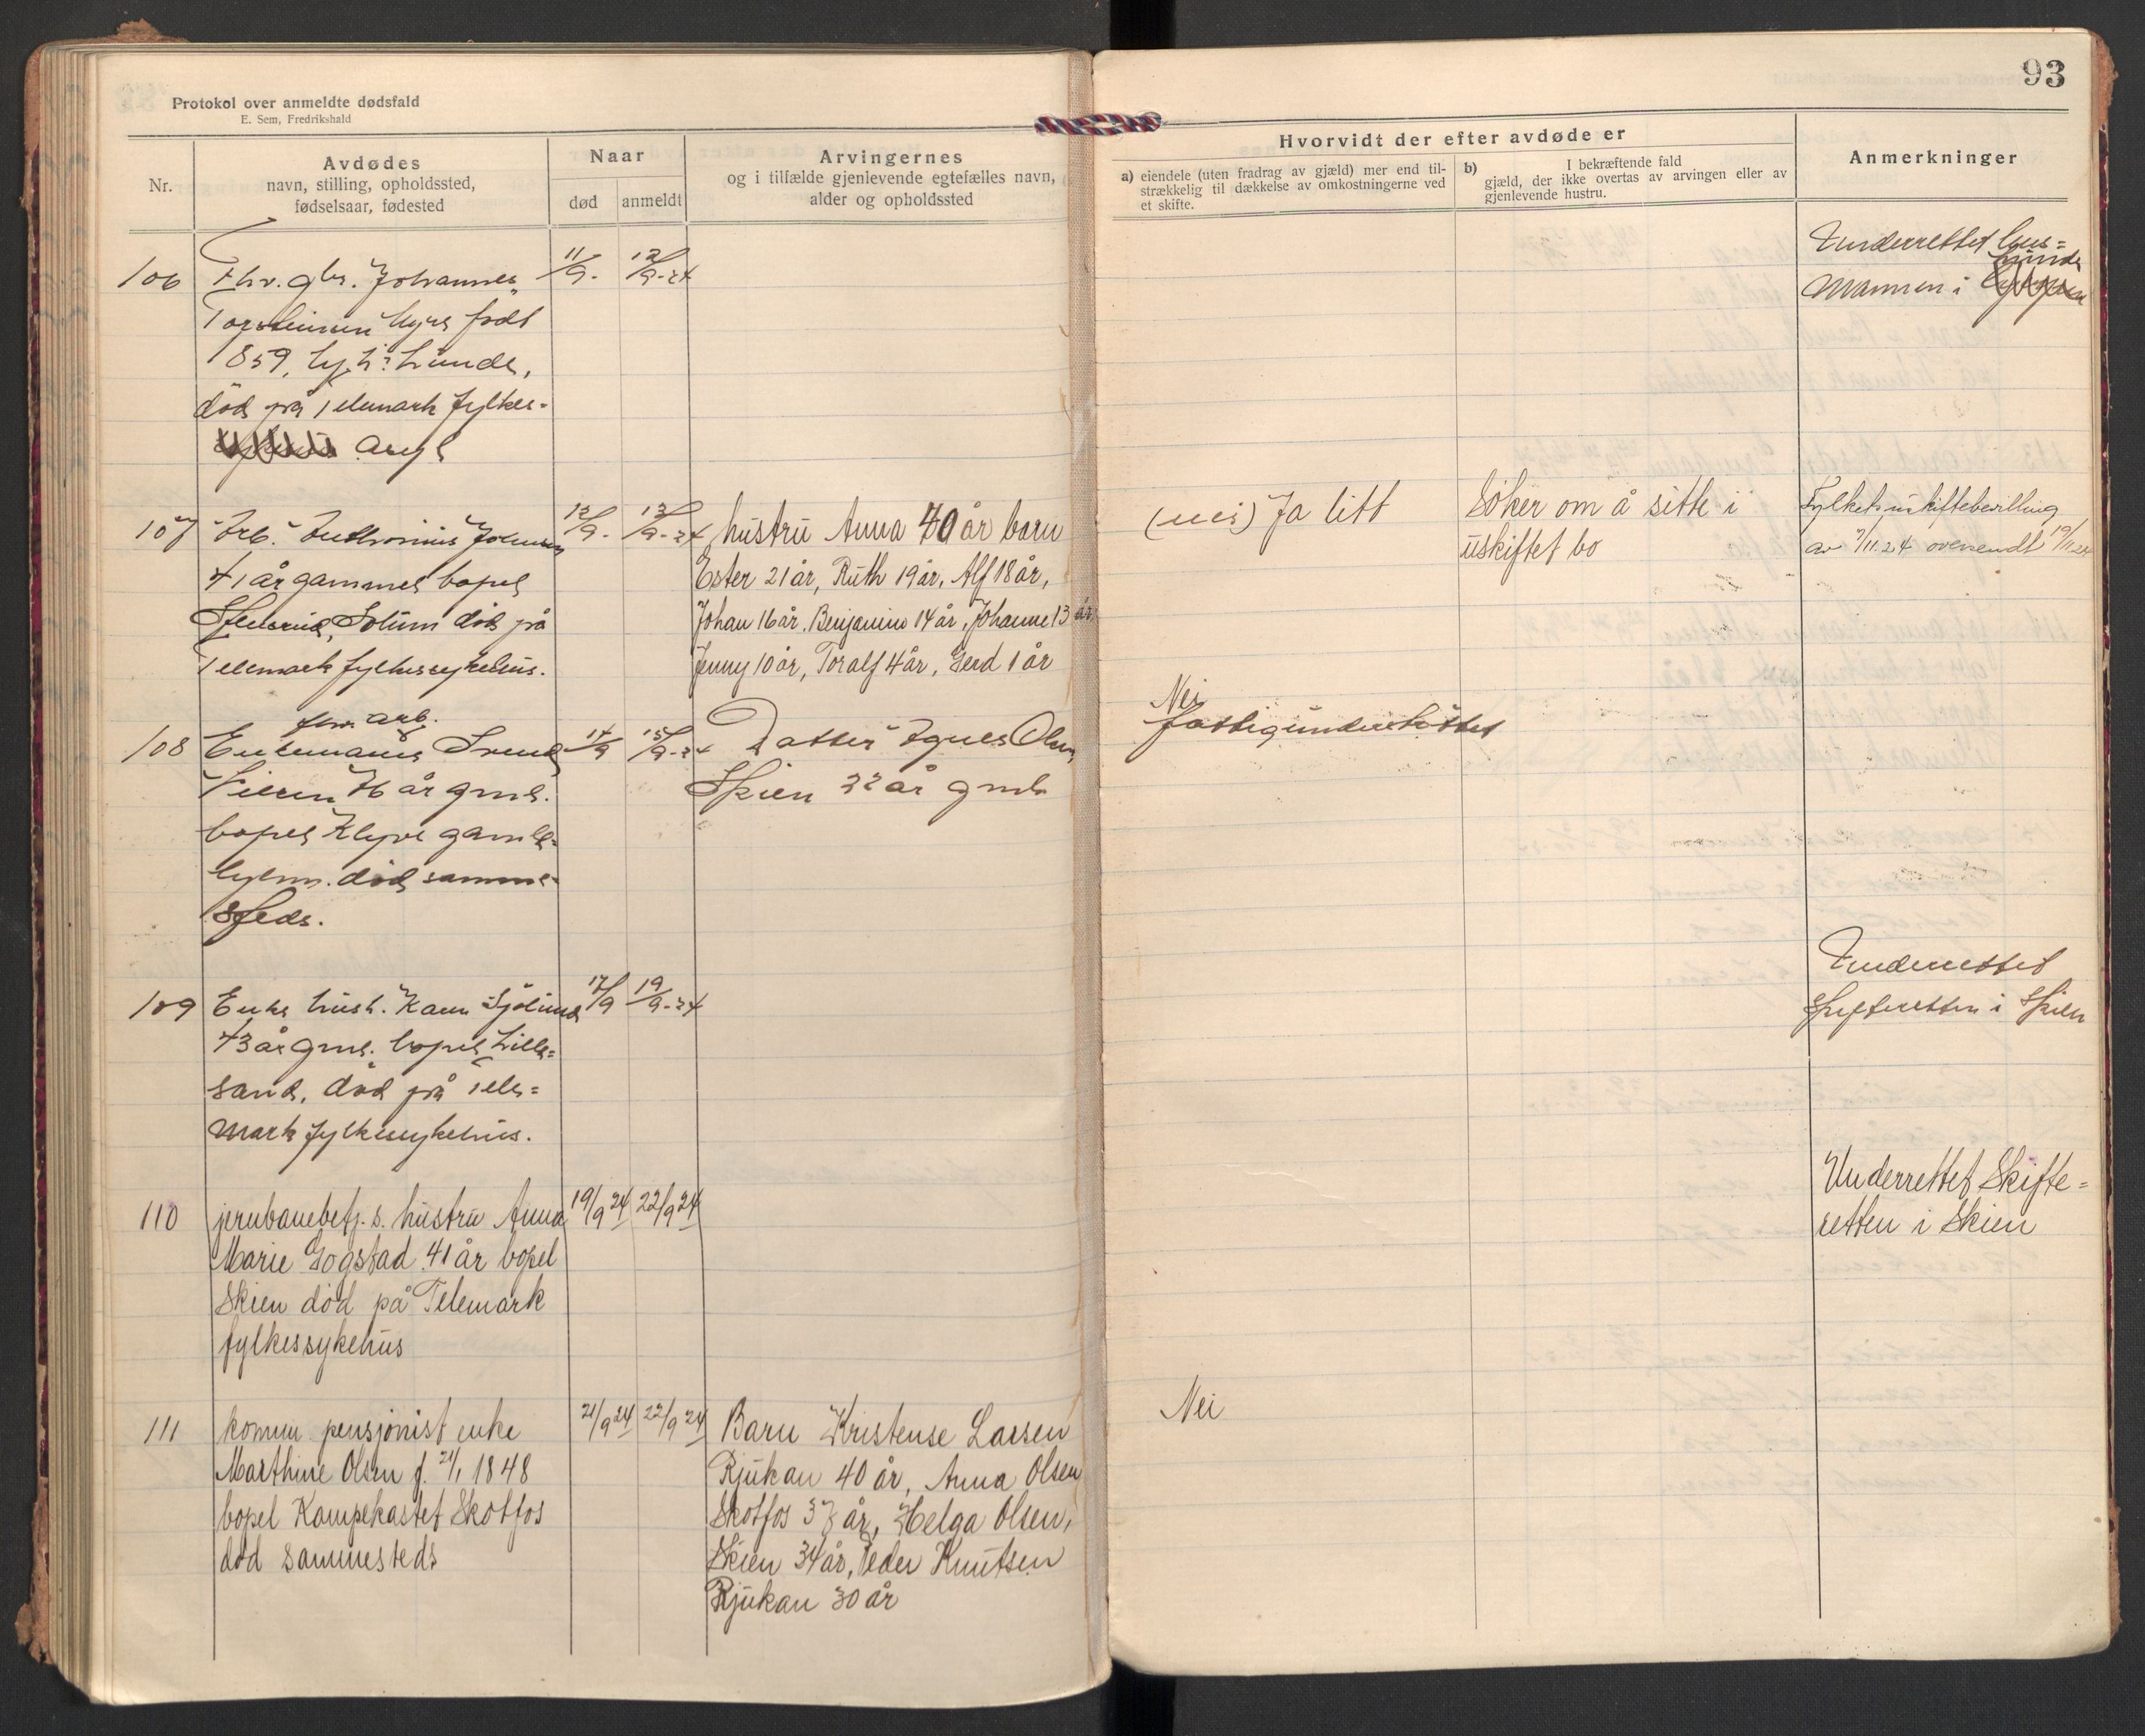 93
Protokol over anmeldte dødsfald
E. Sem, Fredrikshald
Nr.
Avdødes
navn, stilling, opholdssted,
fødselsaar, fødested
Naar
død
anmeldt
Arvingernes
og i tilfælde gjenlevende egtefælles navn,
alder og opholdssted
Hvorvidt der efter avdøde er
a) eiendele (uten fradrag av gjæld) mer end til-
strækkelig til dækkelse av omkostningerne ved
et skifte.
b) I bekræftende fald
gjæld, der ikke overtas av arvingen eller av
gjenlevende hustru.
Anmerkninger
106
Fhv. gbr. Johannes
født
1859, Lunde,
død på Telemark fylkes-
asyl
11/9.
12/9-24
Underrettet lens=
mannen i Lunde
107
Arb. Johnsen
41 år gammel bopel
Solum død på
Telemark fylkessykehus.
12/9.
13/9-24
hustru Anna 40 år barn
Ester 21 år, Ruth 19 år, Alf 18 år,
Johan 16 år, Benjamin 14 år, Johanne 13 år
Jenny 10 år, Toralf 4 år, Gerd 1 år
(nei) Ja litt
Søker om å sitte i
uskiftet bo
Fylkets uskiftebevilling
av 7/11.24 oversendt 19/11.24
108
arb.
76 år gml.
bopel Klyve gamle-
hjem. død samme-
steds.
14/9
15/9-24
Datter Agnes Olsen
Skien 32 år gml.
Nei
fattigunderstøttet
109
Enke hush. Karen
73 år gml. bopel Lille=
sand, død på Tele=
mark fylkessykehus.
17/9
19/9-24
Underrettet
skifteretten i Skien
110
jernbanebetj. s. hustru Anna
Marie Gogstad 41 år bopel
Skien død på Telemark
fylkessykehus
19/9 24
22/9 24
Underrettet Skifte=
retten i Skien
111
komm. pensjonist enke
Marthine Olsen f. 21/1 1848
bopel Kampekastet Skotfos
død sammesteds
21/9 24
22/9 24
Barn Kristense Larsen
Rjukan 40 år, Anna Olsen
Skotfos 37 år, Helga Olsen,
Skien 34 år, Peder Knutsen
Rjukan 30 år
Nei